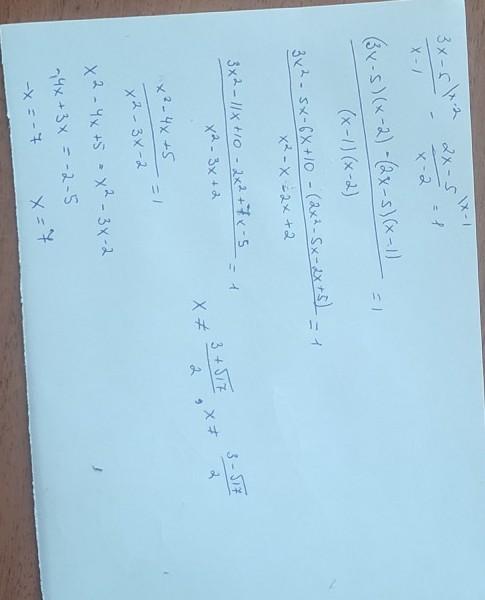 3x-5\x-2 / x-1 - 2x-5\x-1 / x-2 = 1
(3x-5)(x-2) - (2x-5)(x-1) / (x-1)(x-2) = 1
3x² - 5x - 6x + 10 - (2x² - 5x - 2x + 5) / x² - x - 2x + 2 = 1
3x² - 11x + 10 - 2x² + 7x - 5 / x² - 3x + 2 = 1
x² - 4x + 5 / x² - 3x - 2 = 1
x ≠ 3+√17 / 2 , x ≠ 3-√17 / 2
x² - 4x + 5 = x² - 3x - 2
-4x + 3x = -2 - 5
-x = -7 x = 7